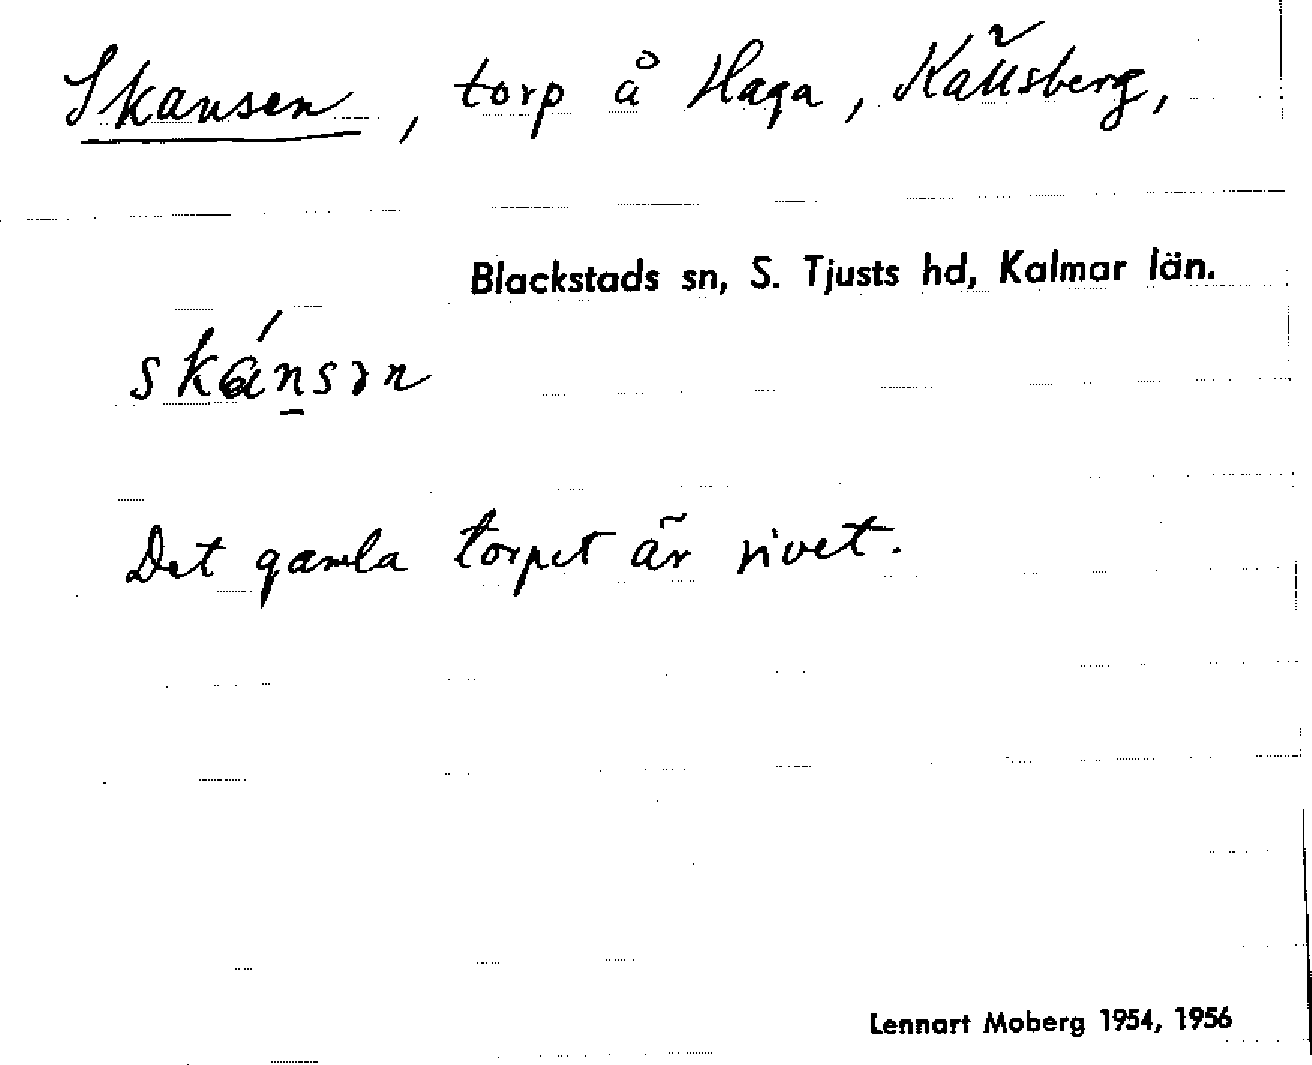 Skansen, torp å Haga, Källsberg,
Blackstads sn, S. Tjusts hd, Kalmar län.
skánsən
Det gamla torpet är rivet.
Lennart Moberg 1954, 1956